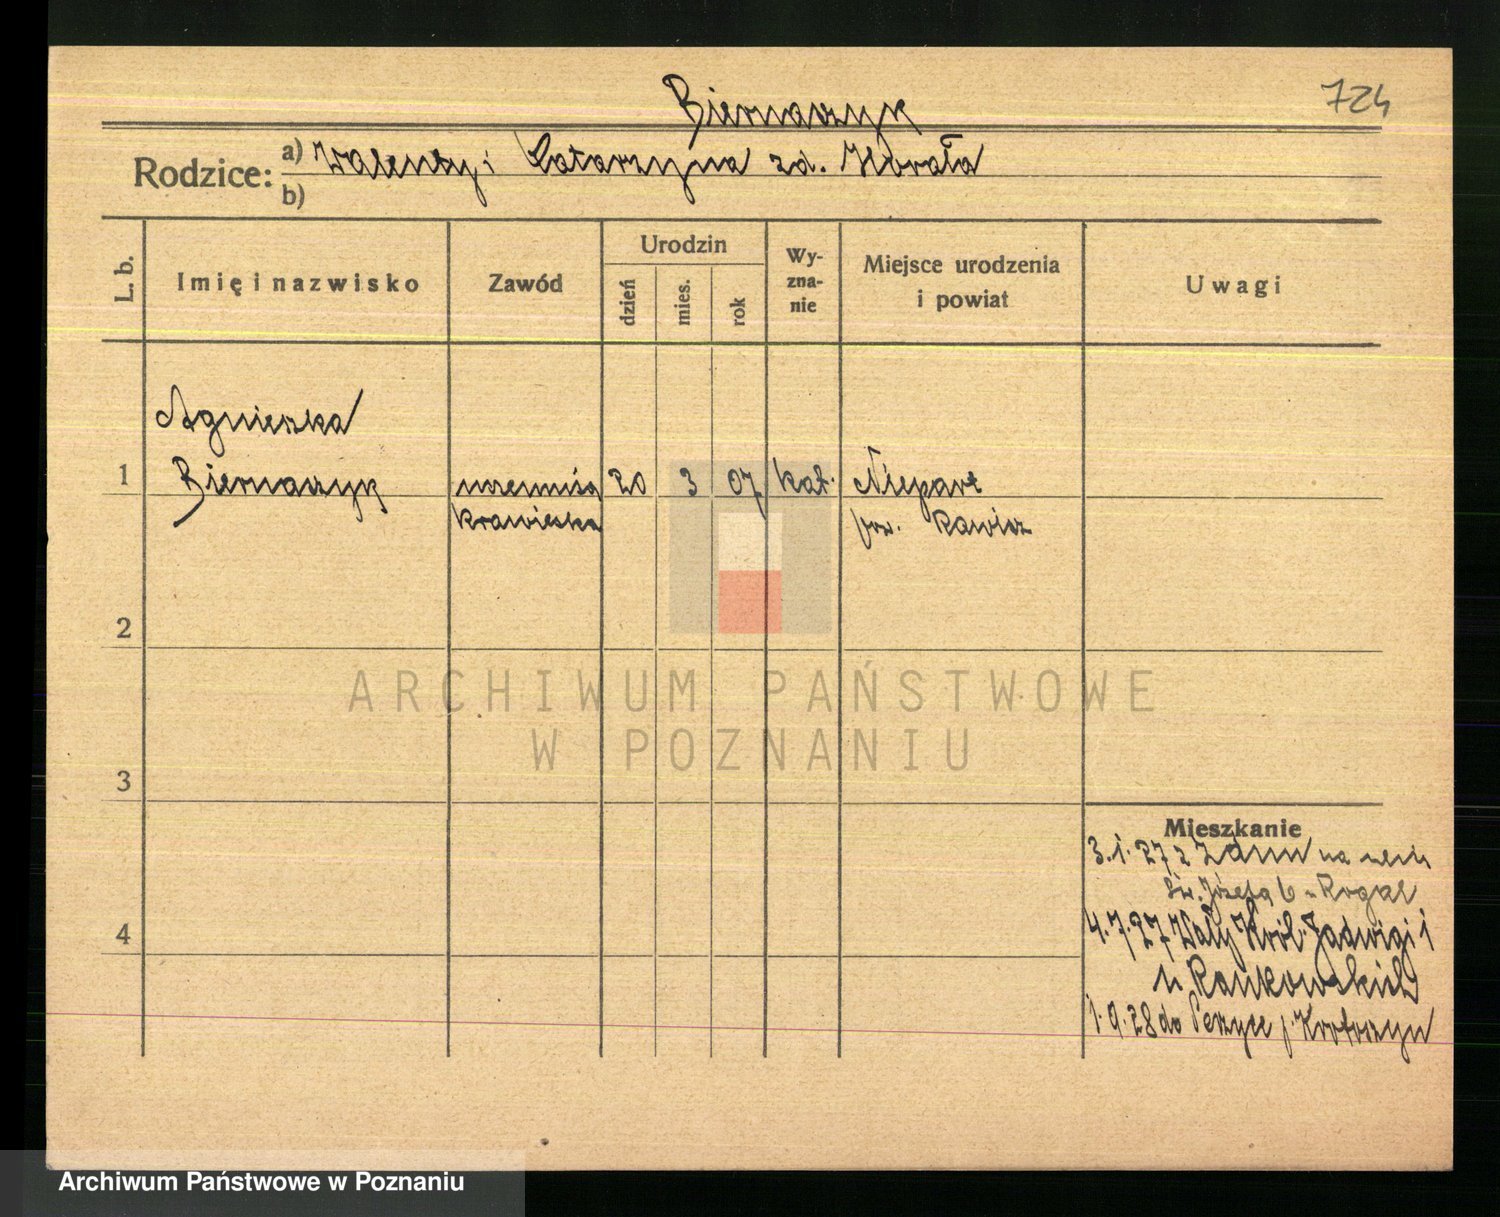 724
Biernaszyk
Rodzice: a) Walenty i Katarzyna zd. Norała
b)
L. b.
Imię i nazwisko
Zawód
Urodzin
dzień
mies.
rok
Wy-
zna-
nie
Miejsce urodzenia
i powiat
Uwagi
Agnieszka
1 Biernaszyk uczennica 20 3 07 kat. Niepart
krawiecka pow. Rawicz
2
ARCHIWUM PAŃSTWOWE
W POZNANIU
3
Mieszkanie
3.1.27 z Zdun na
Św. Józefa 6 u Rogal
4
4.7.27 Wały Król. Jadwigi 1
u Rankowskich
1.9.28 do Perzyce p. Krotoszyn
Archiwum Państwowe w Poznaniu